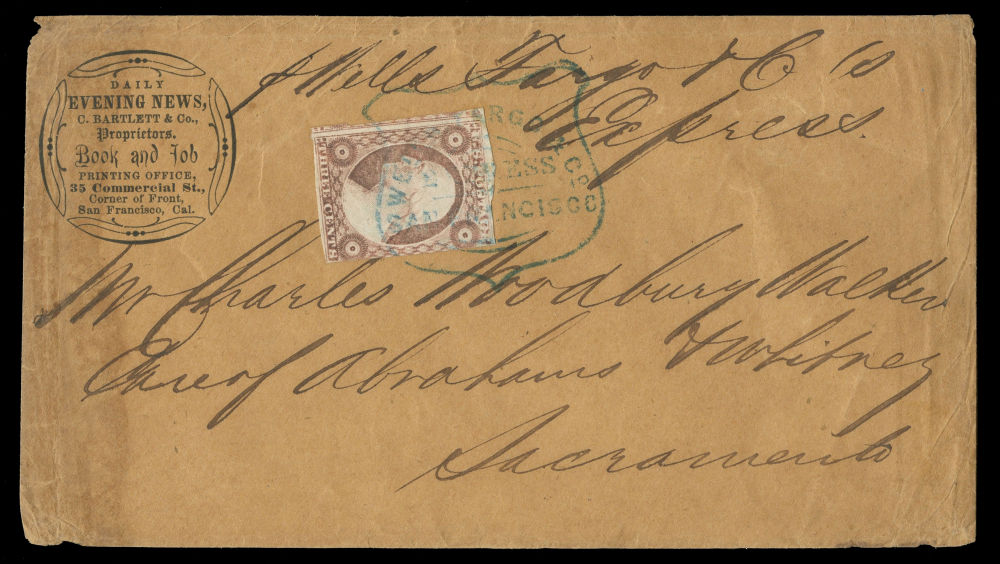 DAILY
EVENING NEWS,
C. BARTLETT & Co.,
Proprietors.
Book and Job
PRINTING OFFICE,
35 Commercial St.,
Corner of Front,
San Francisco, Cal.
Wells Fargo & Co's
Express.
FARGO & CO
EXPRESS
SAN FRANCISCO
THREE CENTS
Mr Charles Woodbury Walker
Care of Abrahams & Whitney
Sacramento